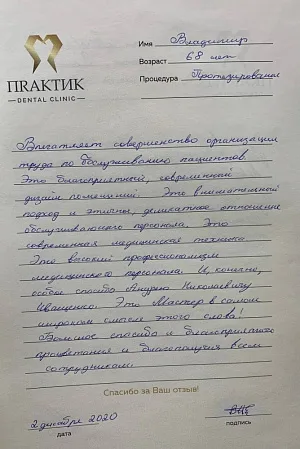 ПRАКТИК
DENTAL CLINIC
Имя Владимир
Возраст 68 лет
Процедура Протезирование
Впечатляет совершенство организации
труда по обслуживанию пациентов.
Это благоприятный, современный
дизайн помещений. Это внимательный
подход и этичное, деликатное отношение
обслуживающего персонала. Это
современная медицинская техника.
Это высокий профессионализм
медицинского персонала. И, конечно,
особое спасибо Андрею Николаевичу
Иващенко. Это Мастер в самом
широком смысле этого слова!
Большое спасибо и благоприятного
процветания и благополучия всем
сотрудникам.
Спасибо за Ваш отзыв!
2 декабря 2020
дата
подпись